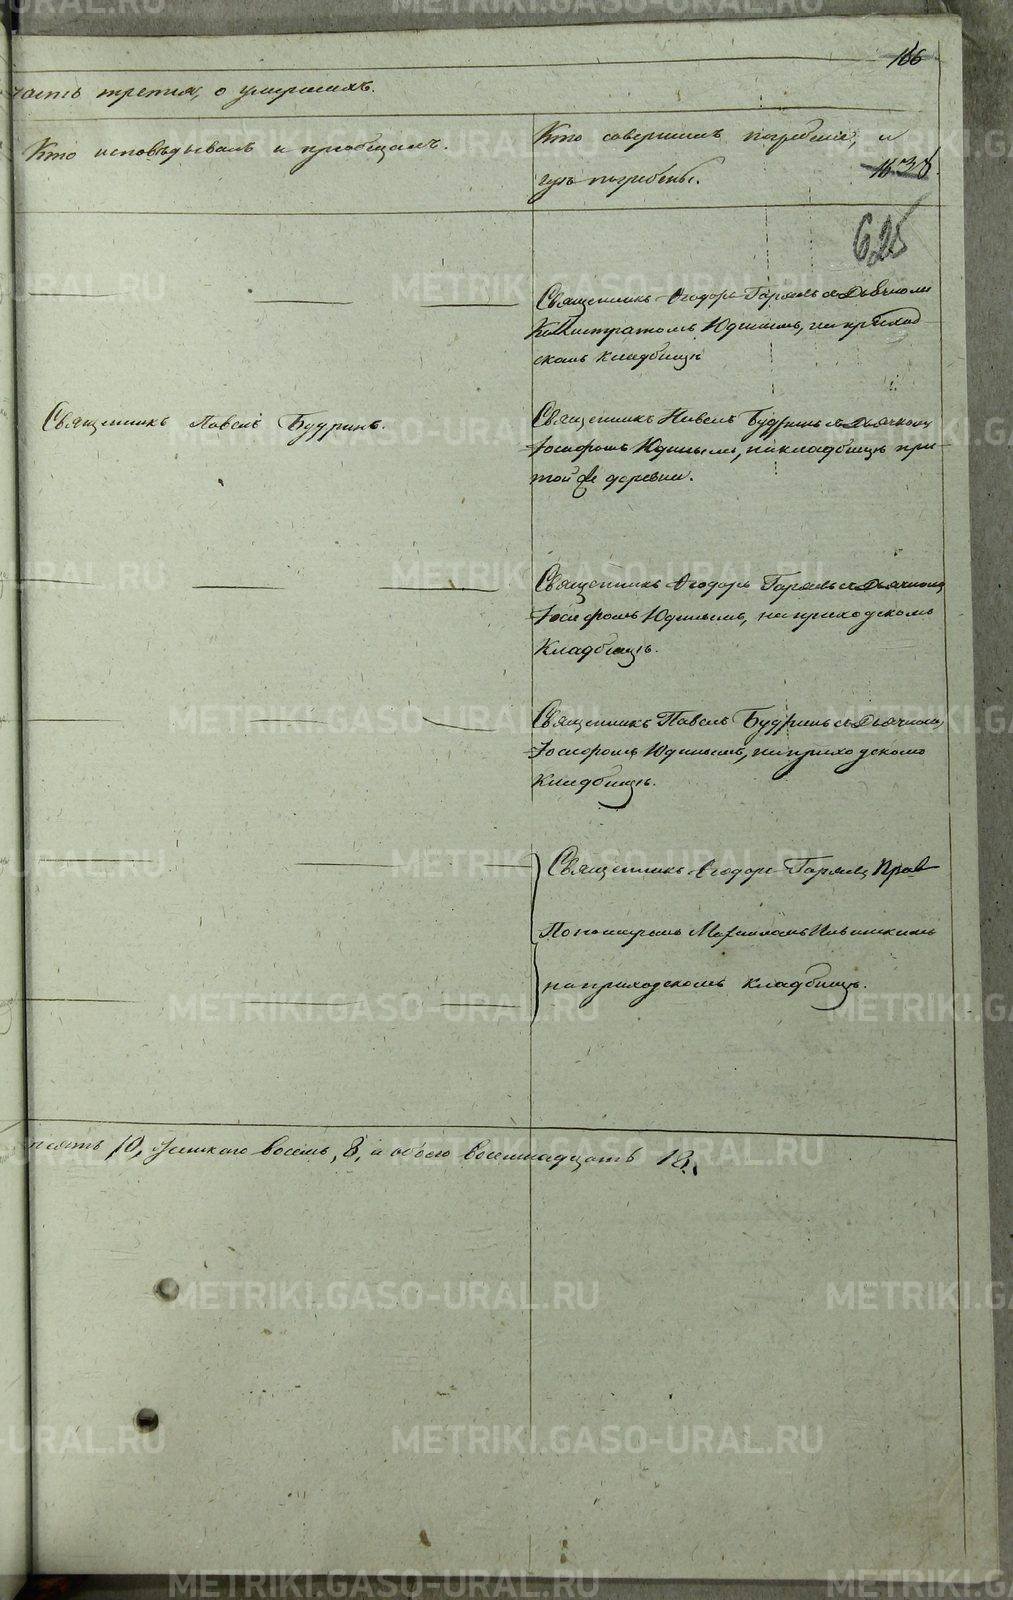 166
часть третия, о умершихъ.
Кто исповѣдывалъ и приобщалъ.
Кто совершилъ погребенiе, и
гдѣ погребены.
625
Священникъ Ѳеодоръ с Дьячкомъ
Юдинымъ, на приход
скомъ кладбищѣ
Священникъ Павелъ Будринъ.
Священникъ Павелъ Будринъ съ Дьячкомъ
Iосифомъ Юдинымъ, на кладбищѣ при
той же деревни.
Священникъ Ѳеодоръ съ Дьячкомъ
Iосифомъ Юдинымъ, на приходскомъ
Кладбищѣ.
Священникъ Павелъ Будринъ съ Дьячкомъ
Iосифомъ Юдинымъ, на приходскомъ
Кладбищѣ.
Священникъ Ѳеодоръ
Пономаремъ Ильинскимъ
на приходскомъ кладбищѣ.
10, женскаго восемь, 8, а обоего восемнадцать 18.
METRIKI.GASO-URAL.RU